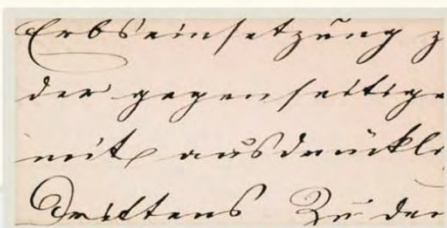 Erbseinsetzung z
der gegenseitige
mit ausdrückli
Drittens Zu der